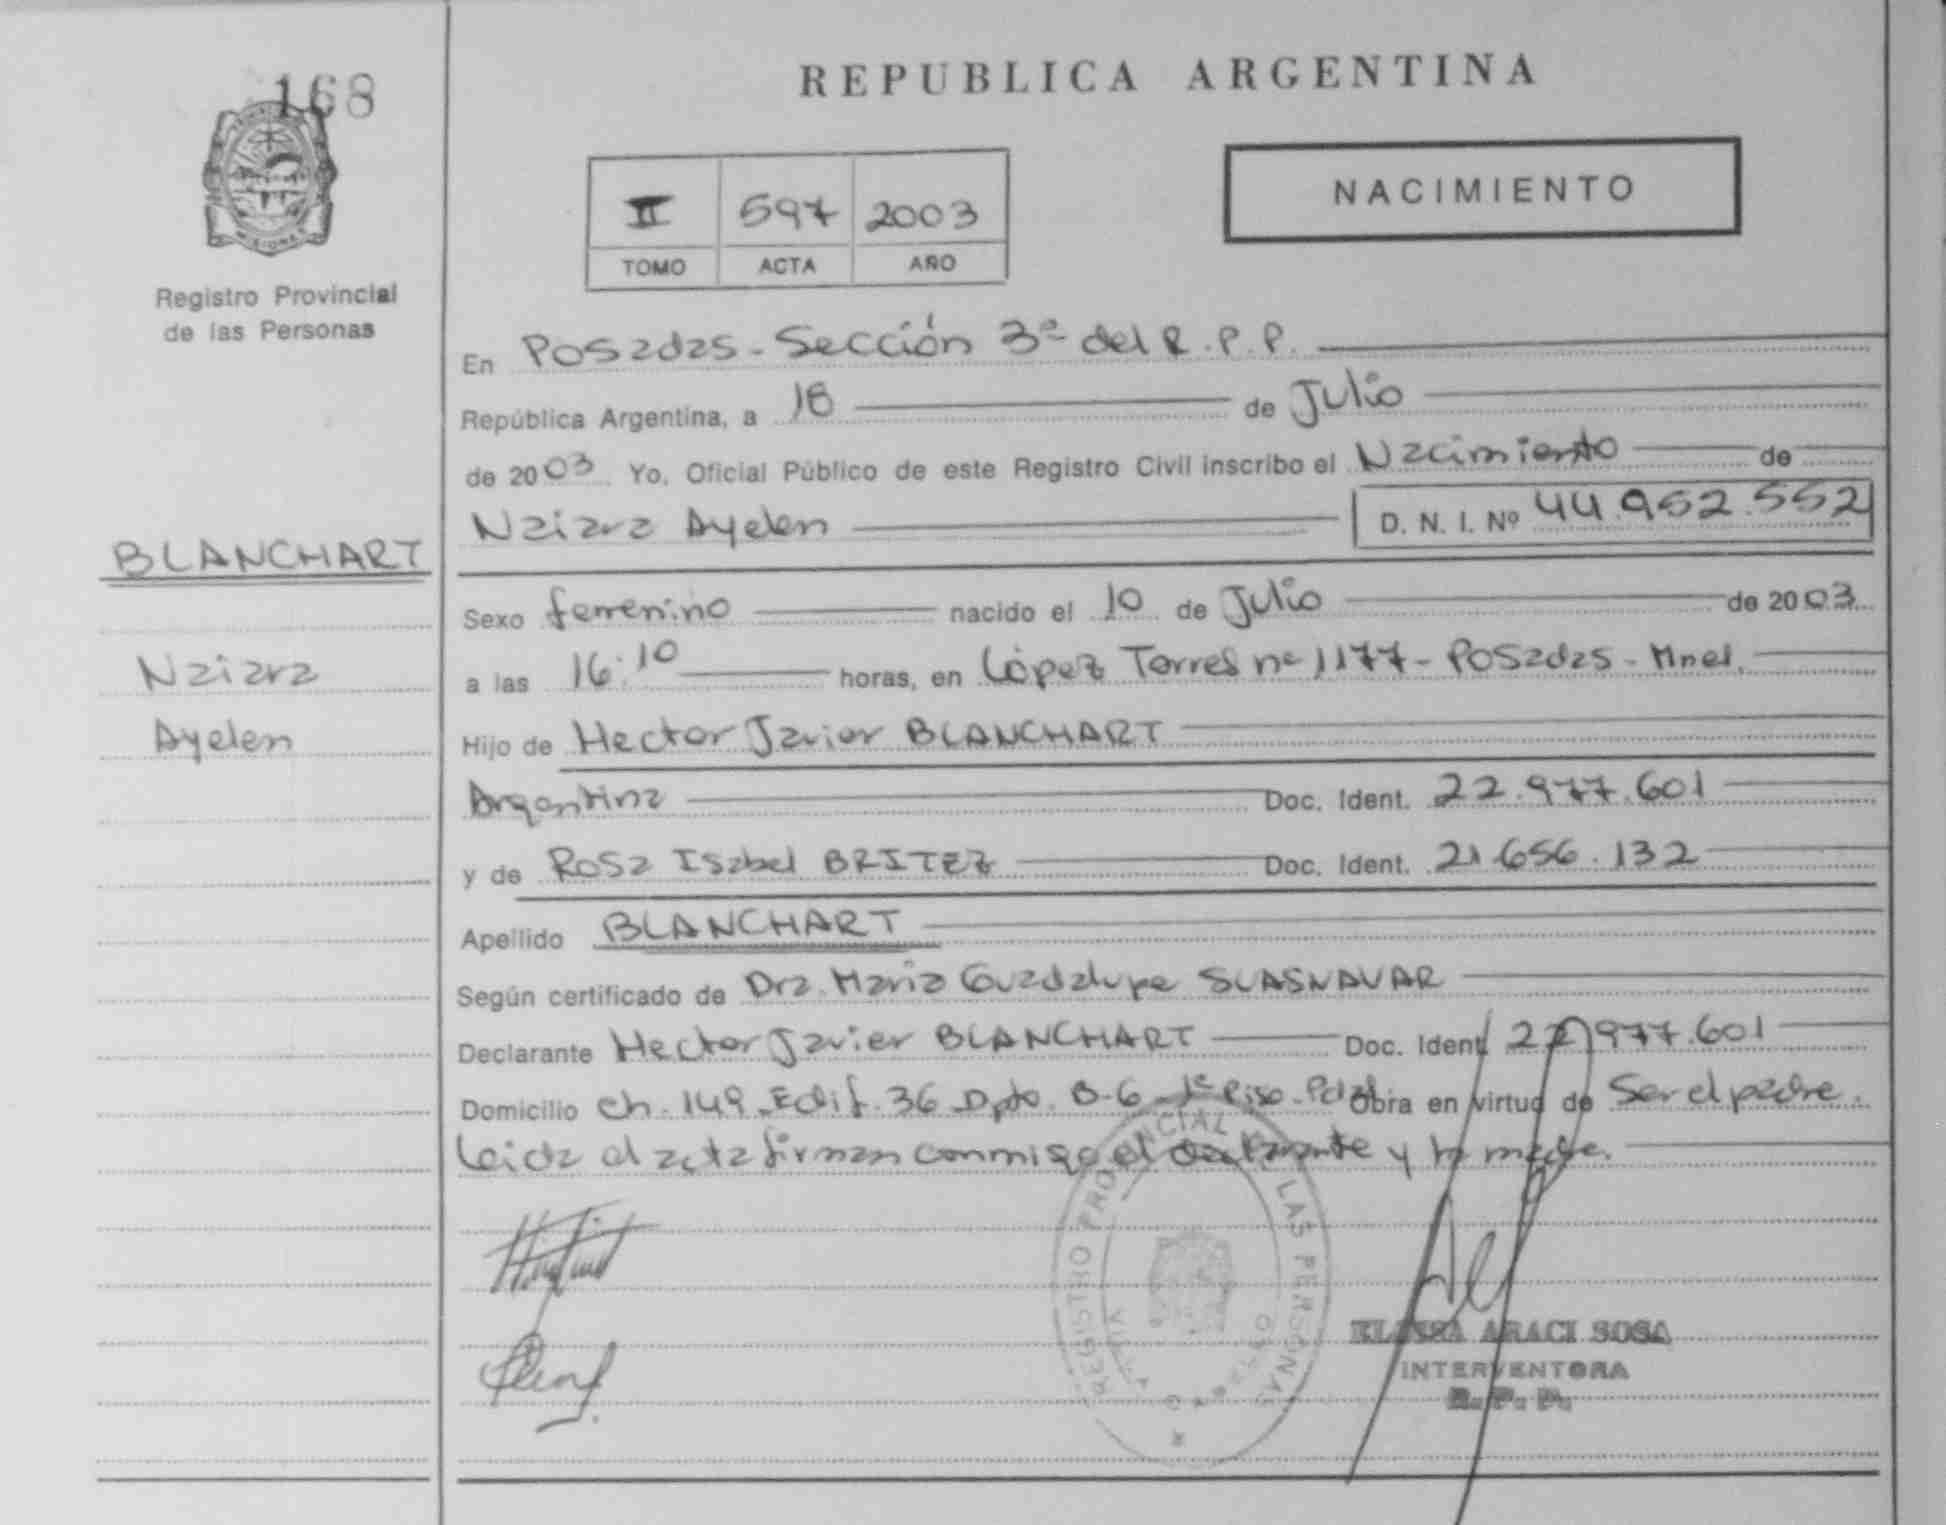 168
MISIONES
Registro Provincial
de las Personas
REPUBLICA ARGENTINA
II 597 2003
TOMO ACTA AÑO
NACIMIENTO
En Posadas - Sección 3ª del R.P.P.
República Argentina, a 18 de Julio
de 2003 Yo, Oficial Público de este Registro Civil inscribo el Nacimiento de
Naiara Ayelen D. N. I. Nº 44.952.552
BLANCHART
Sexo femenino nacido el 10 de Julio de 2003
Naiara
a las 16:10 horas, en López Torres nº 1177 - Posadas - Mnes.
Ayelen
Hijo de Hector Javier BLANCHART
Argentina Doc. Ident. 22.977.601
y de Rosa Isabel BRITEZ Doc. Ident. 21.656.132
Apellido BLANCHART
Según certificado de Dra. Maria Guadalupe SLASNAVAR
Declarante Hector Javier BLANCHART Doc. Ident. 22.977.601
Domicilio Ch. 149 - Edif. 36 - Dpto. B-6 - 1º Piso - Pdas Obra en virtud de Ser el padre.
Leida el acta firman conmigo el declarante y la madre.
REGISTRO PROVINCIAL DE LAS PERSONAS
ELISSA ARACI SOSA
INTERVENTORA
R. P. P.